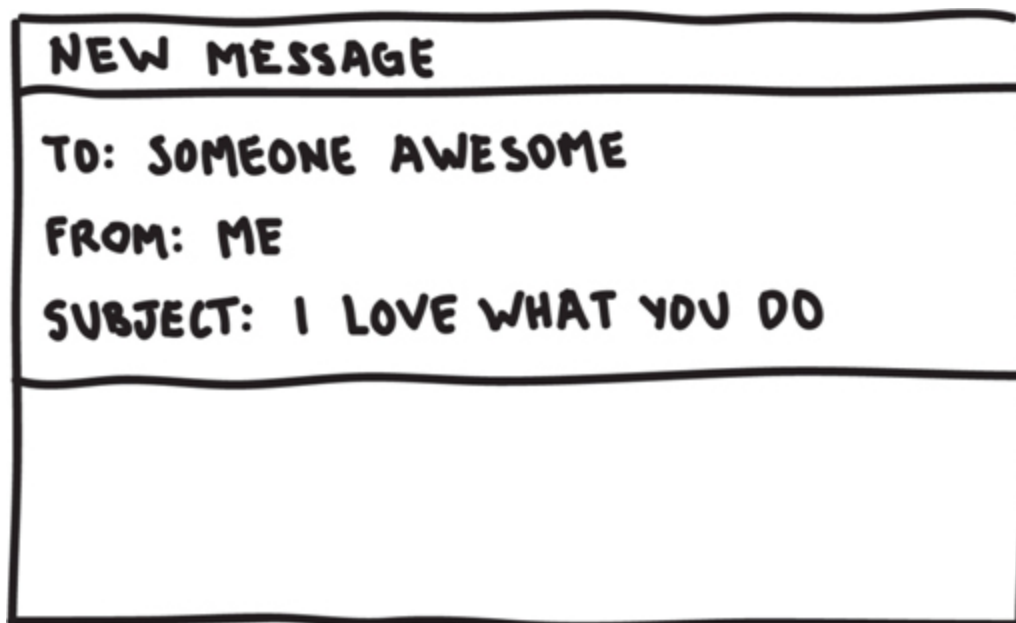 NEW MESSAGE
TO: SOMEONE AWESOME
FROM: ME
SUBJECT: I LOVE WHAT YOU DO